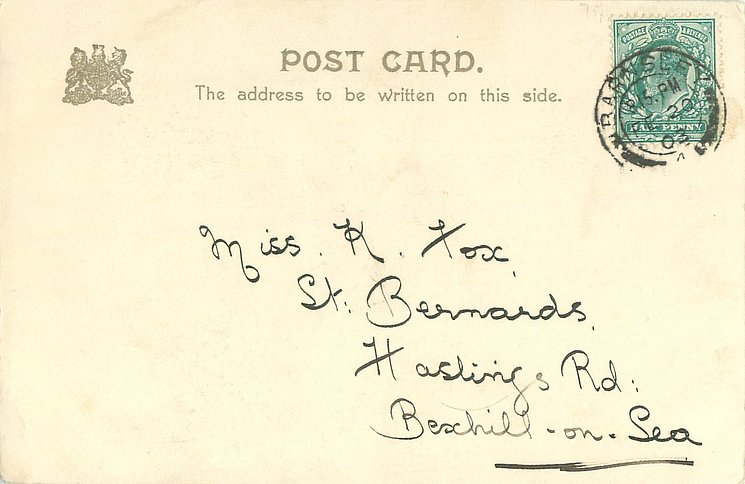 POST CARD.
The address to be written on this side.
POSTAGE & REVENUE
HALF PENNY
PM
20
03
Miss. K. Fox,
St. Bernards,
Hastings Rd:
Bexhill-on-Sea